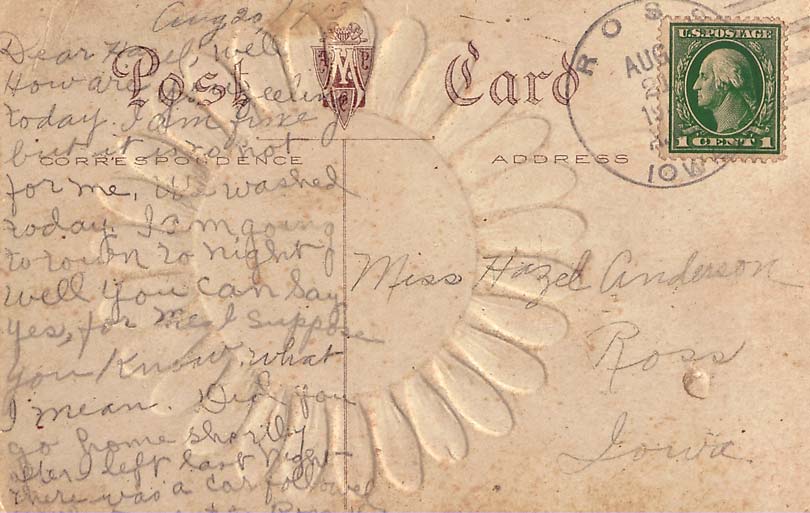 Aug 20,
Post Card
A P C M
CORRESPONDENCE
ADDRESS
ROSS
AUG
IOWA
U.S. POSTAGE
1 CENT 1
Dear Hazel, well
How are you feeling
today. I am fine
but it is to hot
for me, We washed
today. I am going
to town to night
well you can say
yes, for me I suppose
you know what
I mean. Did you
go home shortly
after I left last night
there was a car followed
Miss Hazel Anderson
Ross
Iowa.